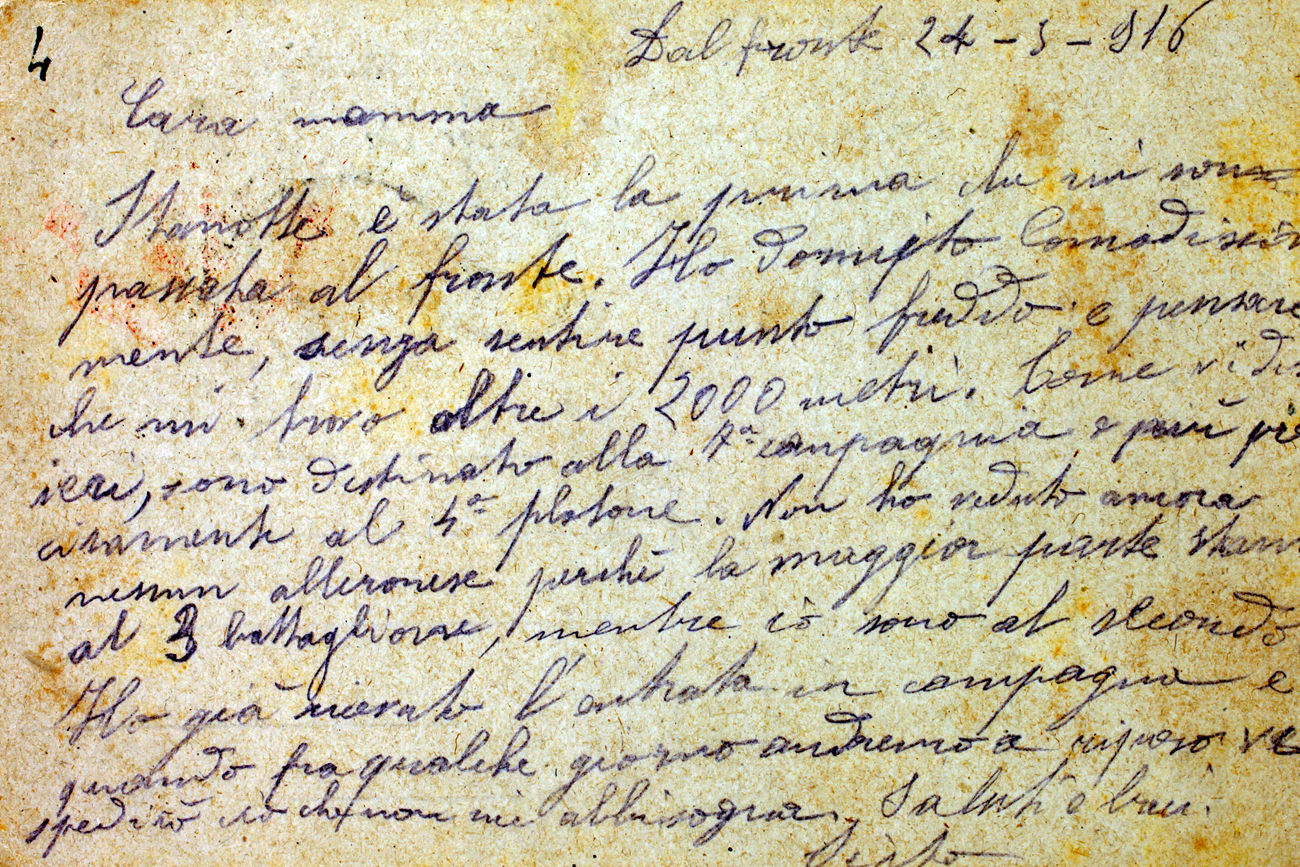 4
Dal fronte 24-5-916
Cara mamma
Stanotte è stata la prima che mi son
passata al fronte. Ho dormito Comodissima
mente, senza sentire punto freddo e pensare
che mi trovo oltre i 2000 metri. Come vi dissi
ieri, sono destinato alla 7ª compagnia e più pre
cisamente al 4º plotone. Non ho veduto ancora
nessun alleronese perchè la maggior parte stanno
al 3 battaglione, mentre io sono al secondo
Ho già ricevuto l'entrata in campagna e
quando fra qualche giorno andremo a riposo ve
spedirò ciò che non mi abbisogna. Saluti e baci.